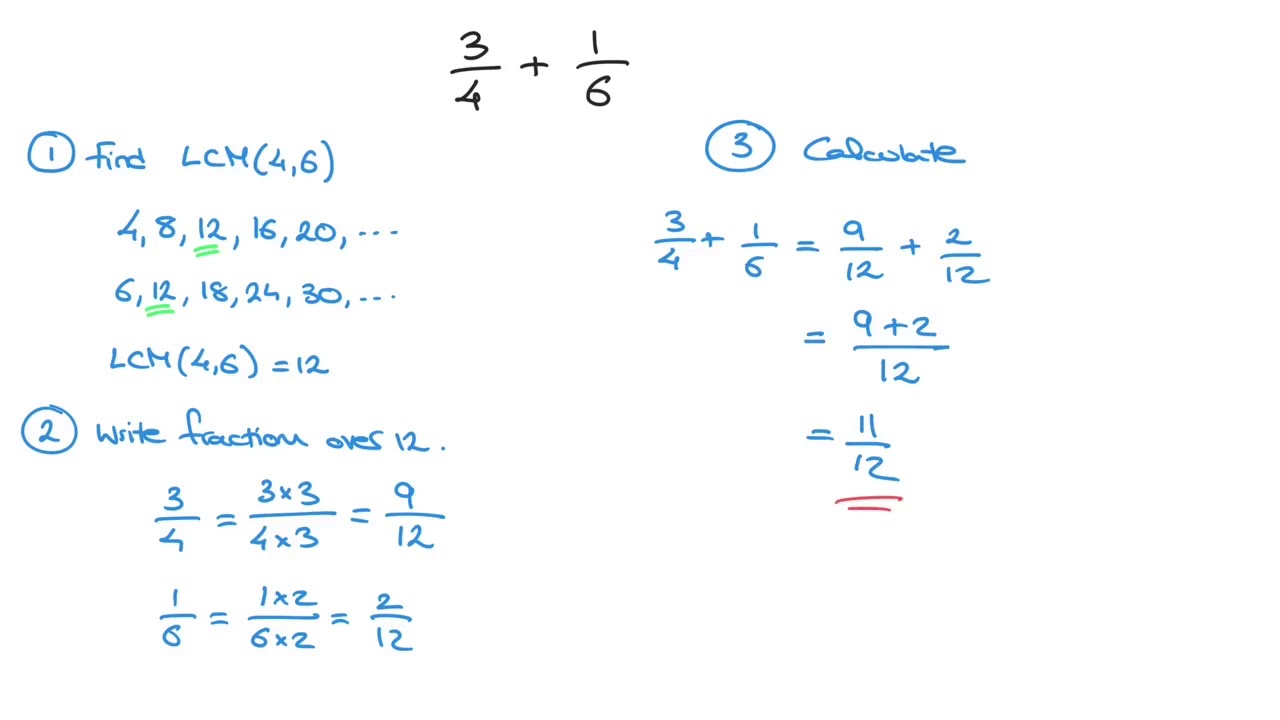 3/4 + 1/6
① Find LCM(4,6)
4, 8, 12, 16, 20, ...
6, 12, 18, 24, 30, ...
LCM(4,6) = 12
② Write fraction over 12.
3/4 = 3×3/4×3 = 9/12
1/6 = 1×2/6×2 = 2/12
③ Calculate
3/4 + 1/6 = 9/12 + 2/12
= 9+2/12
= 11/12